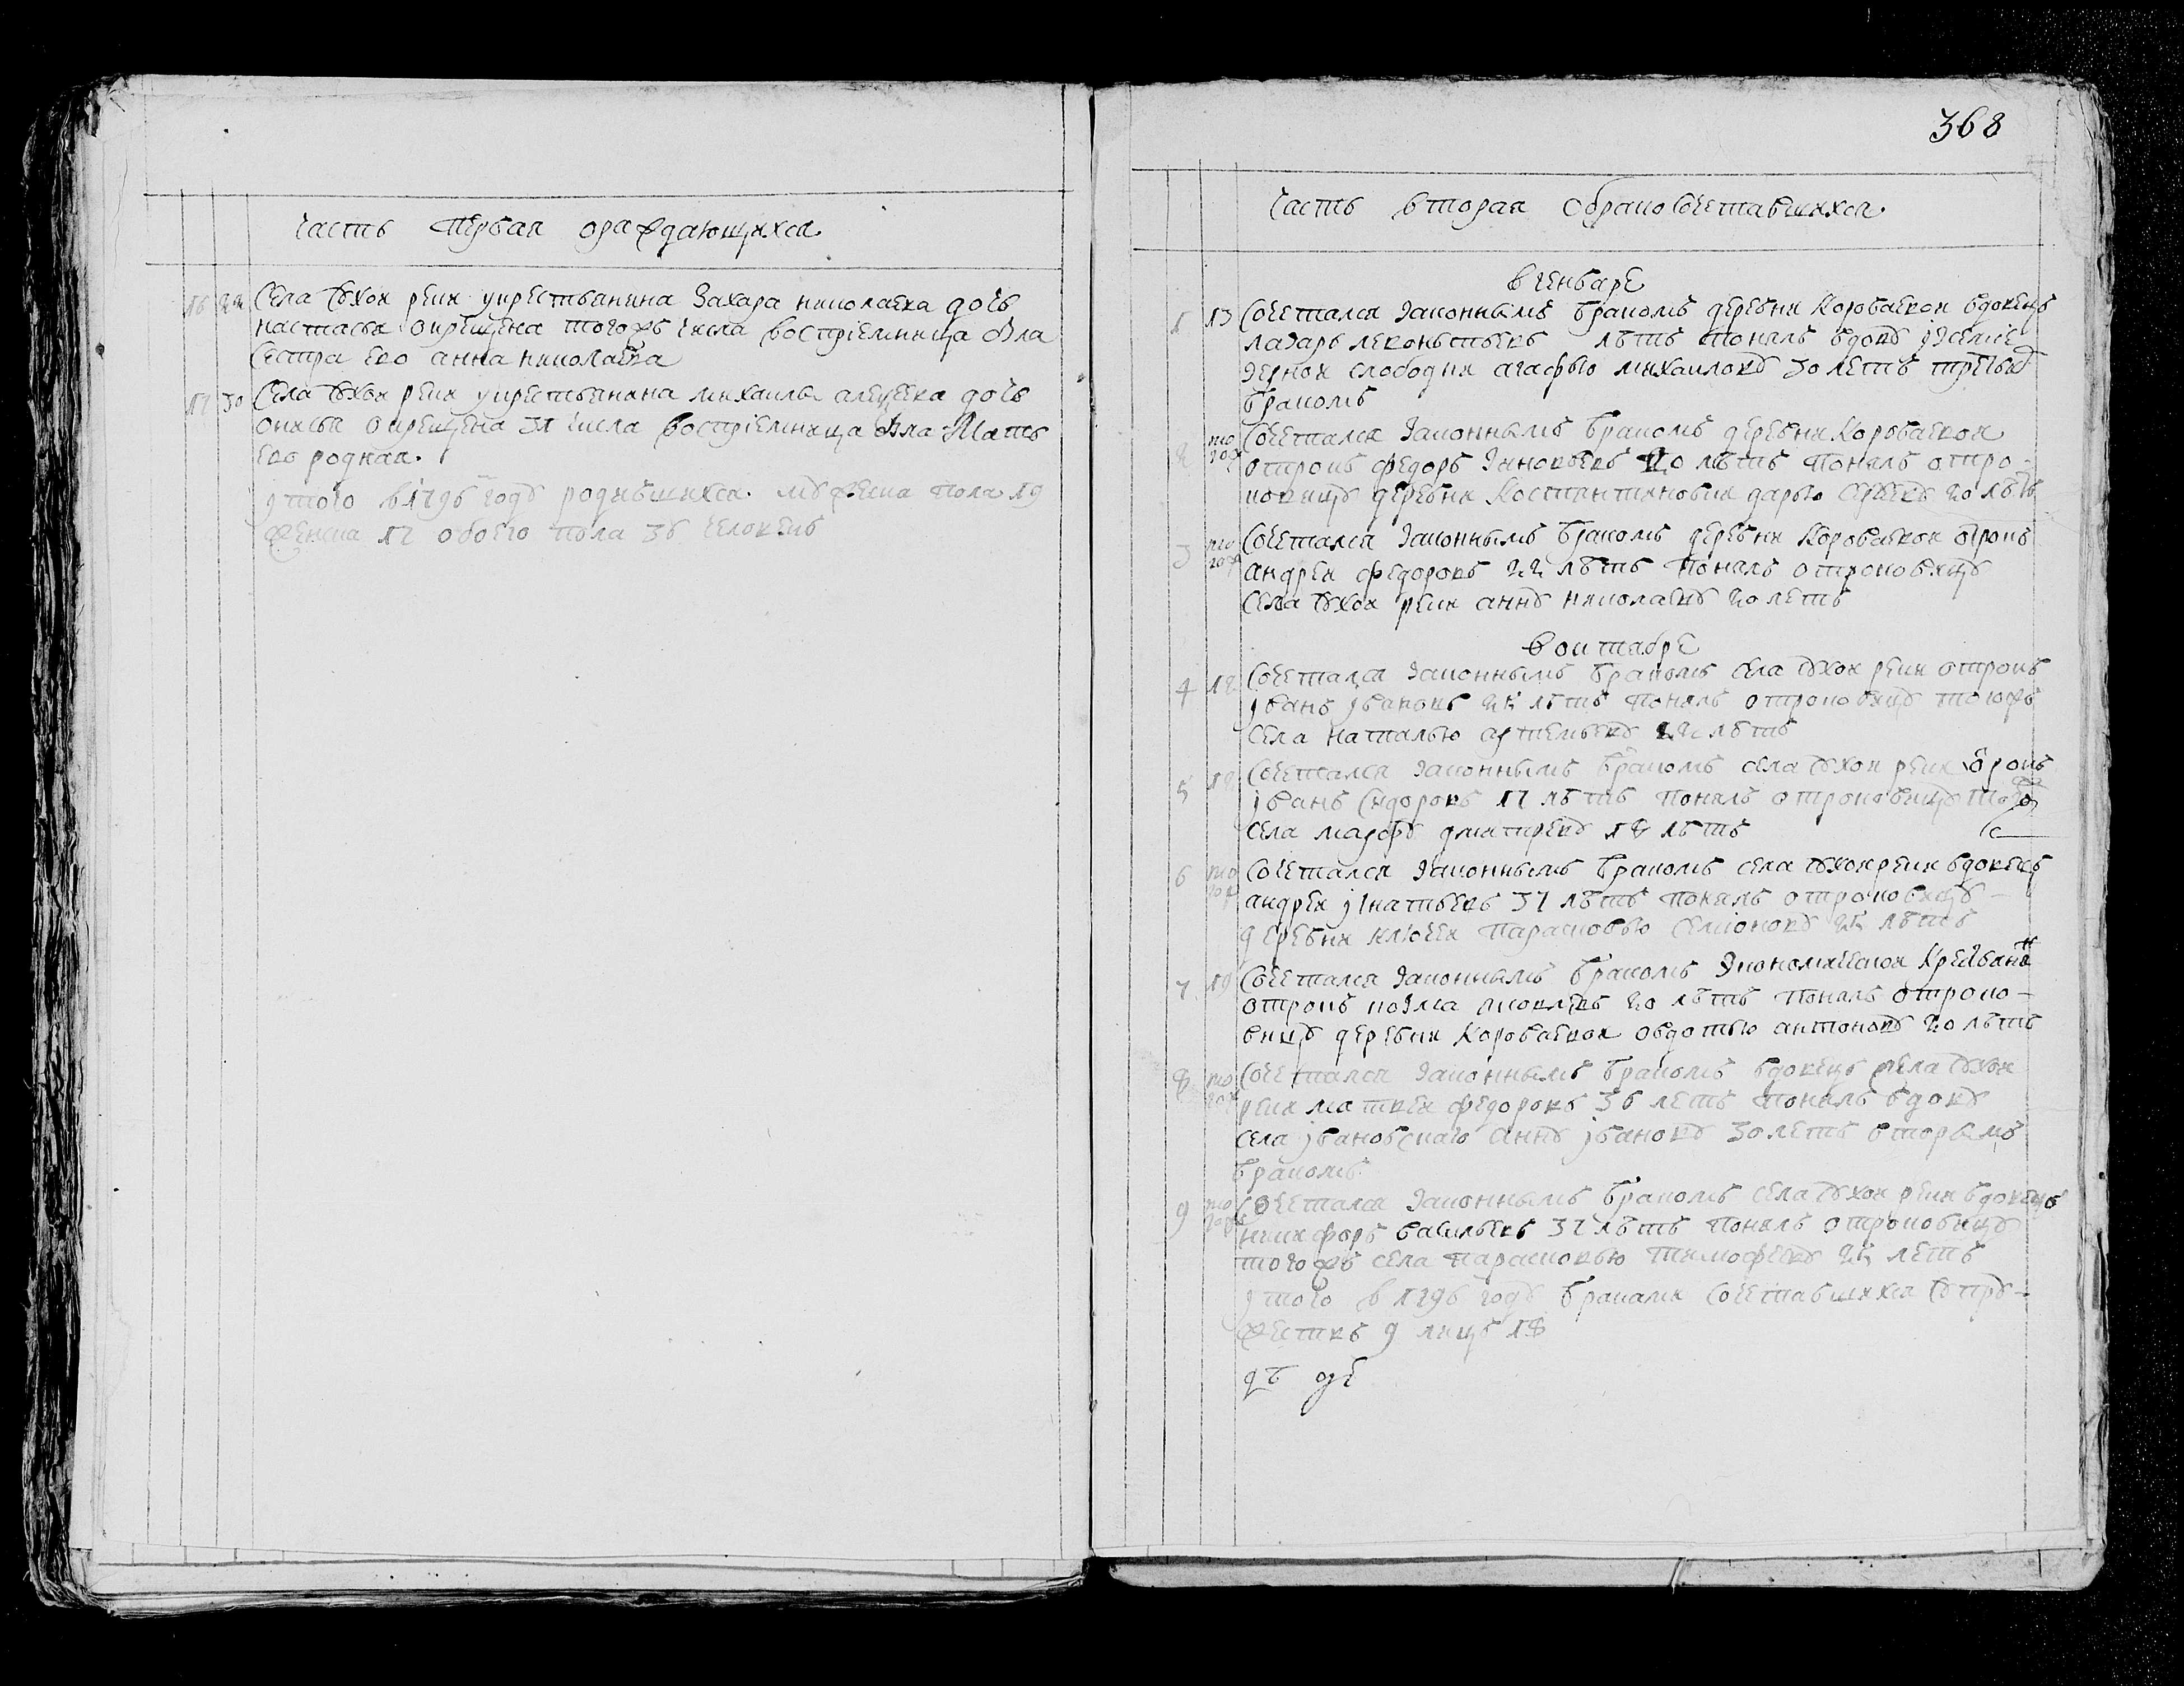 Часть Первая ораждающихся
16 22 Села Сухой реки укрестьянина Захара николаева дочь
настасья окрещена тогожъ числа восприемница была
Сестра ево анна николаева
17 30 Села Сухой реки укрестьянина михаила дочь
окрещена 31 числа восприемница была Мать
ево родная.
јтого в 1796 году родившихся мужеска пола 19
женска 17 обоего пола 36 человекъ
368
Часть вторая обракосочетавшихся
в генваре
1 13 Сочетался законнымъ бракомъ деревни Короваевой вдовецъ
лазарь леконьтьевъ лѣтъ понялъ вдову
слободки агафью михаилову 30 летъ третьимъ
бракомъ
2 тогож Сочетался законнымъ бракомъ деревни Короваевой
отрокъ федоръ зиновьевъ 20 лѣтъ понялъ отро-
ковицу деревни Костянтиновки дарью 20 лѣтъ
3 тогож Сочетался законнымъ бракомъ деревни Короваевой отрокъ
андрей федоровъ 22 лѣтъ понялъ отроковицу
Села Сухой реки анну николаеву 20 летъ
в октябре
4 12 Сочетался законнымъ бракомъ села Сухой реки отрокъ
јванъ јвановъ 25 лѣтъ понялъ отроковицу тогожъ
села наталью артемьеву 22 лѣтъ
5 12 Сочетался законнымъ бракомъ села Сухой реки отрокъ
јванъ Сидоровъ 17 лѣтъ понялъ отроковицу тогож
села марфу дмитреву 18 лѣтъ
6 тогож Сочетался законнымъ бракомъ села Сухой реки вдовецъ
андрей јгнатьевъ 37 лѣтъ понялъ отроковицу
деревни ключей парасковью семионову 25 лѣтъ
7 19 Сочетался законнымъ бракомъ экономической
отрокъ козма яковлевъ 20 лѣтъ понялъ отроко-
вицу деревни Короваевой овдотью антонову 20 лѣтъ
8 тогож Сочетался законнымъ бракомъ вдовецъ села Сухой
реки матвей федоровъ 36 летъ понялъ вдову
села јвановскаго анну јванову 30 летъ вторымъ
бракомъ
9 тогож Сочетался законнымъ бракомъ села Сухой реки вдовецъ
никифоръ васильевъ 37 лѣтъ понялъ отроковицу
тогожъ села парасковью тимофееву 25 летъ
јтого в 1796 году браками сочетавшихся супру-
жествъ 9 лицъ 18